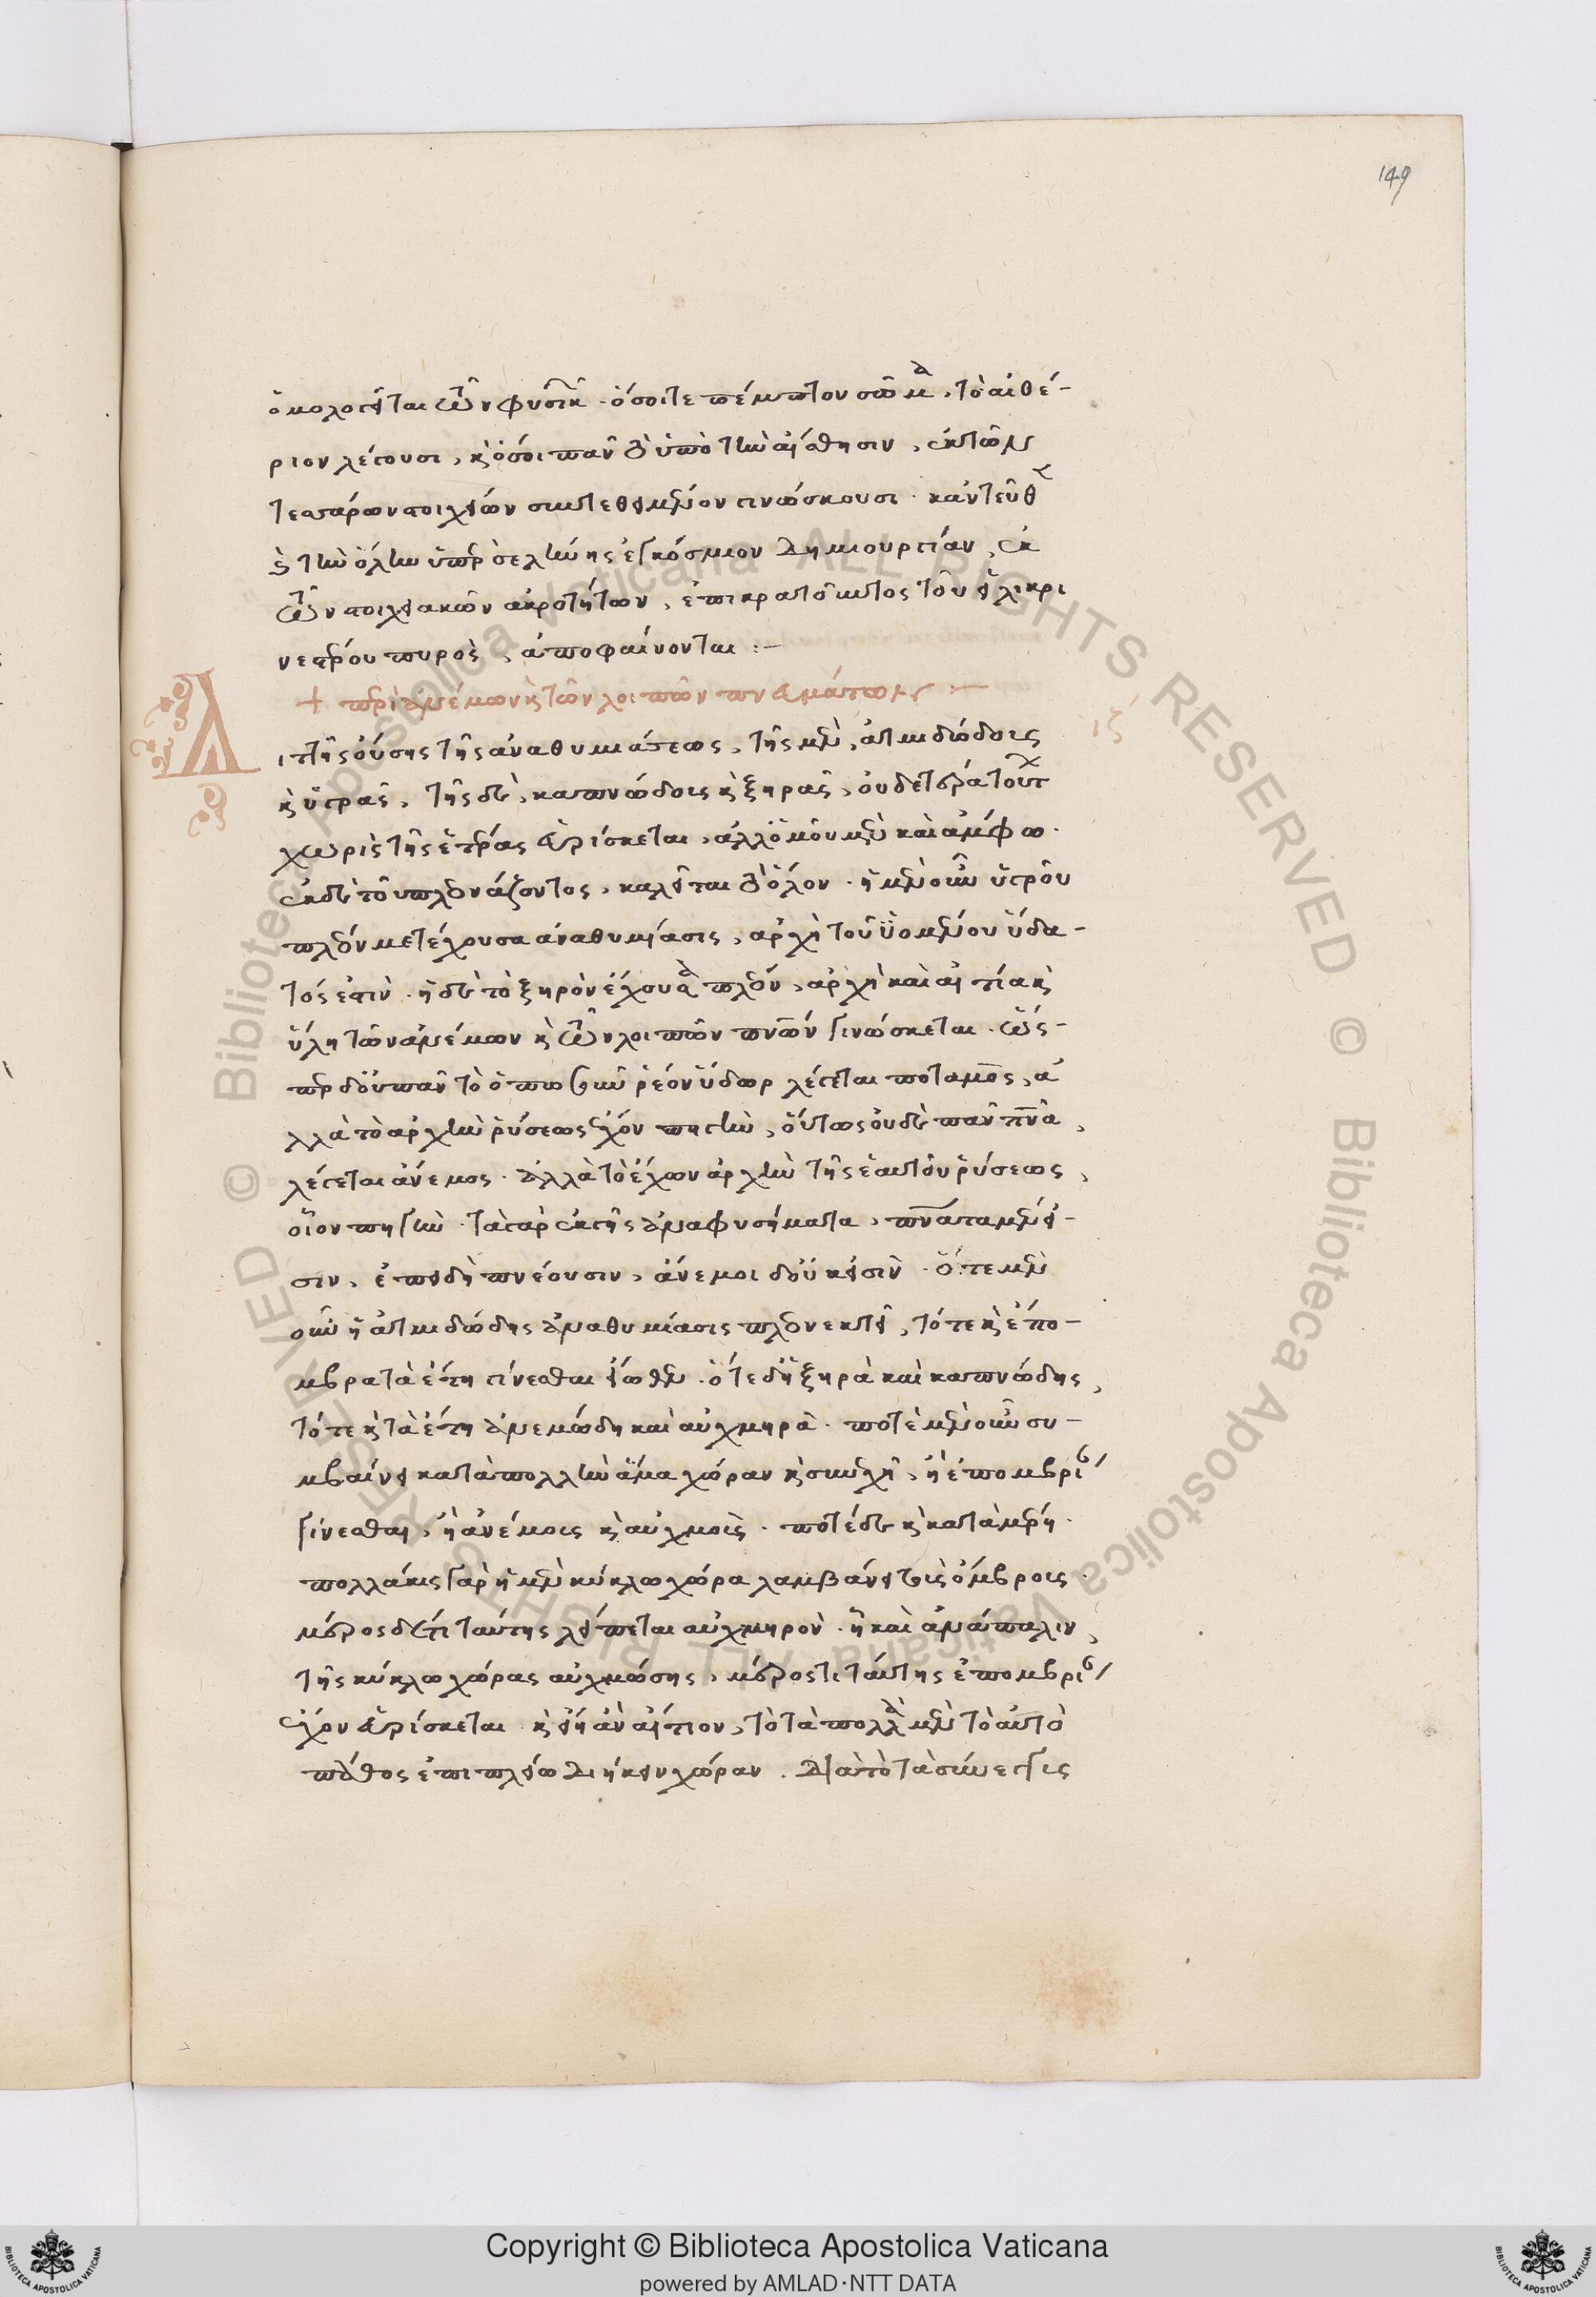 149
ὁμολογεῖται τῶν φυσικῶν. ὅσοι τε πέμπτον σῶμα, τὸ αἰθέ-
ριον λέγουσι, κ ὅσοι πᾶν τὸ ὑπὸ τὴν αἴσθησιν, ἐκ τῶν
τεσσάρων στοιχείων συντεθειμένον γινώσκουσι. κἀντεῦθεν
κ τὴν ὅλην ὑπὲρ σελήνης ἐγκόσμιον δημιουργίαν, ἐκ
τῶν στοιχειακῶν ἀκροτήτων, ἐπικρατοῦντος τοῦ εἰλικρι
νεστέρου πυρὸς, ἀποφαίνονται :-
+ περὶ ἀνέμων κ τῶν λοιπῶν πνευμάτων :-
ιζ
Διττῆς οὔσης τῆς ἀναθυμιάσεως, τῆς μὲν, ἀτμιδώδους
κ ὑγρᾶς, τῆς δὲ, καπνώδους κ ξηρᾶς, οὐδετέρα τούτων
χωρὶς τῆς ἑτέρας εὑρίσκεται, ἀλλ' ὁμοῦ μὲν καὶ ἄμφω.
ἐκ δὲ τοῦ πλεονάζοντος, καλεῖται τὸ ὅλον. ἡ μὲν οὖν ὑγροῦ
πλέον μετέχουσα ἀναθυμίασις, ἀρχὴ τοῦ ὑομένου ὕδα-
τός ἐστιν. ἡ δὲ τὸ ξηρὸν ἔχουσα πλέον, ἀρχὴ καὶ αἰτία κ
ὕλη τῶν ἀνέμων κ τῶν λοιπῶν πνευμάτων γινώσκεται. ὥς-
περ δ' οὐ πᾶν τὸ ὁπωσοῦν ῥέον ὕδωρ λέγεται ποταμὸς, ἀ
λλὰ τὸ ἀρχὴν ῥύσεως ἔχον πηγὴν, οὕτως οὐδὲ πᾶν πνεῦμα,
λέγεται ἄνεμος. ἀλλὰ τὸ ἔχων ἀρχὴν τῆς ἑαυτοῦ ῥύσεως,
οἷον πηγὴν. τὰ γὰρ ἐκ γῆς ἀναφυσήματα, πνεύματα μὲν εἰ-
σιν, ἐπειδὴ πνέουσιν, ἄνεμοι δ' οὔκ εἰσιν. ὅτε μὲν
οὖν ἡ ἀτμιδώδης ἀναθυμίασις πλεονεκτεῖ, τότε κ ἔπο-
μβρα τὰ ἔτη γίνεσθαι εἴωθεν. ὅτε δ' ἡ ξηρὰ καὶ καπνώδης,
τότε κ τὰ ἔτη ἀνεμώδη καὶ αὐχμηρά. ποτὲ μὲν οὖν συ-
μβαίνει κατὰ πολλὴν ἅμα χώραν κ συνεχῆ, ἢ ἐπομβρίας
γίνεσθαι, ἢ ἀνέμους κ αὐχμοὺς. ποτέ δὲ κ κατὰ μέρη.
πολλάκις γὰρ ἡ μὲν κύκλω χώρα λαμβάνει τοὺς ὄμβρους.
μέρος δέ τι ταύτης λείπεται αὐχμηρὸν. ἢ καὶ ἀνάπαλιν,
τῆς κύκλω χώρας αὐχμώσης, μέρος τι ταύτης ἐπομβρίας
ἔχον εὑρίσκεται. κ εἴη ἂν αἴτιον, τὸ τὰ πολλὰ μὲν τὸ αὐτὸ
πάθος ἐπὶ πλείω διήκειν χώραν. διὰ τὸ τὰ σύνεγγυς
Copyright © Biblioteca Apostolica Vaticana
powered by AMLAD·NTT DATA
Biblioteca Apostolica Vaticana ALL RIGHTS RESERVED ©